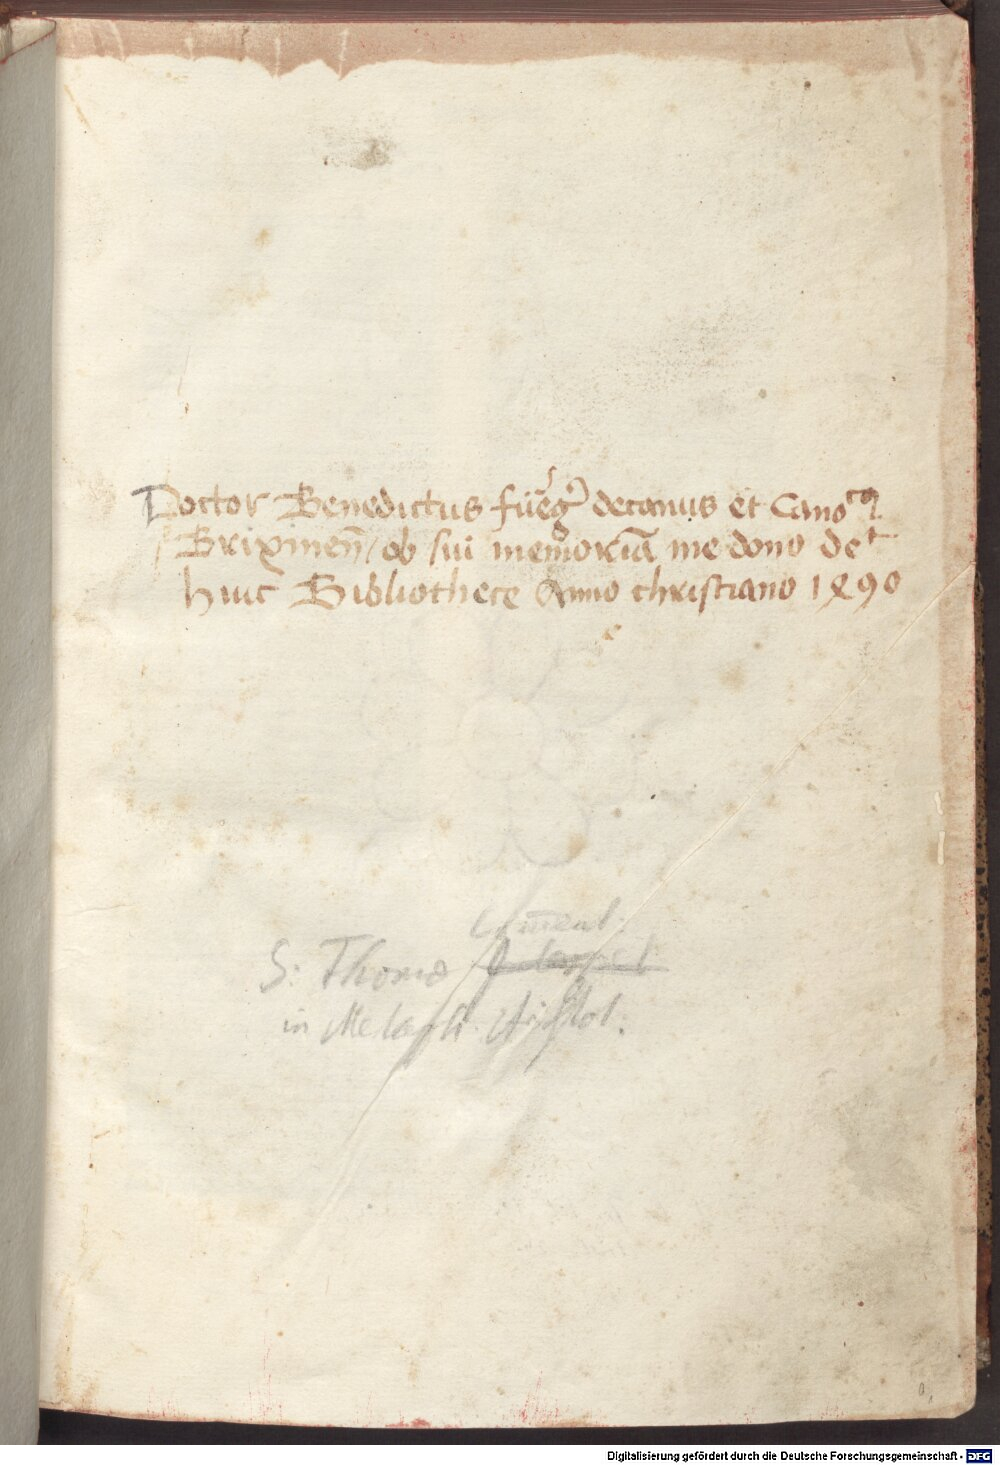 Doctor Benedictus fueg̃ decanus et Cano^cq
Brixineñ / ob sui memoriã me dono de^t
huic Bibliothece Anno christiano 1490
com̄ent:
S: Thomæ
in Metaph. Aristot:
Digitalisierung gefördert durch die Deutsche Forschungsgemeinschaft - DFG